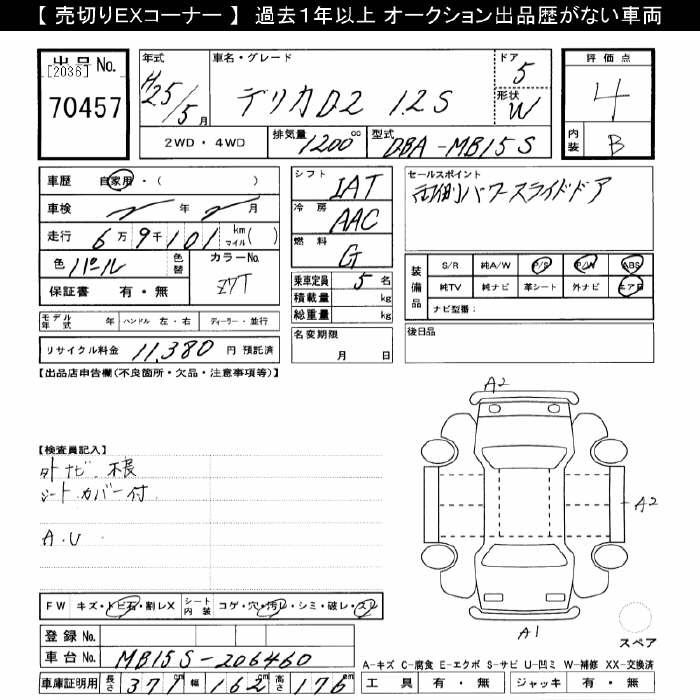 【 売切りEXコーナー 】 過去１年以上 オークション出品歴がない車両
出品 No.
[2036]
70457
年式
H25/5月
車名・グレード
デリカD2 1.2S
ドア
5
形状
W
評価点
4
内装
B
2WD・4WD
排気量
1200cc
型式
DBA-MB15S
車歴
自家用・( )
車検
年 月
走行
6万9千101 km マイル( )
色
パール
色替
カラーNo.
Z7T
保証書 有・無
シフト
IAT
冷房
AAC
燃料
G
乗車定員 5名
積載量 kg
総重量 kg
名変期限
月 日
セールスポイント
両側パワースライドドア
装備品
S/R 純A/W P/S P/W ABS
純TV 純ナビ 革シート 外ナビ エアB
ナビ型番：
後日品
モデル年式 年 ハンドル 左・右 ディーラー・並行
リサイクル料金 11,380 円 預託済
【出品店申告欄(不良箇所・欠品・注意事項等)】
【検査員記入】
外ナビ 不良
シートカバー付
A.U
A2
A2
A1
スペア
FW キズ・トビ石・割レX シート内装 コゲ・穴・汚レ・シミ・破レ・スレ
登録 No.
車台 No. MB15S-206460
車庫証明用 長さ 371cm 幅 162cm 高さ 176cm
A-キズ C-腐食 E-エクボ S-サビ U-凹ミ W-補修 XX-交換済
工具 有・無 ジャッキ 有・無